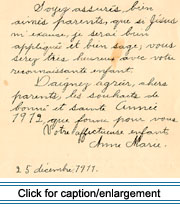 Soyez assurés, bien
aimés parents, que si Jésus
m'exauce, je serai bien
appliquée et bien sage; vous
serez très heureux avec votre
reconnaissante enfant.
Daignez agréer, chers
parents, les souhaits de
bonne et sainte Année
1912, que forme pour vous
Votre affectueuse enfant
Anne Marie.
25 décembre, 1911.
Click for caption/enlargement